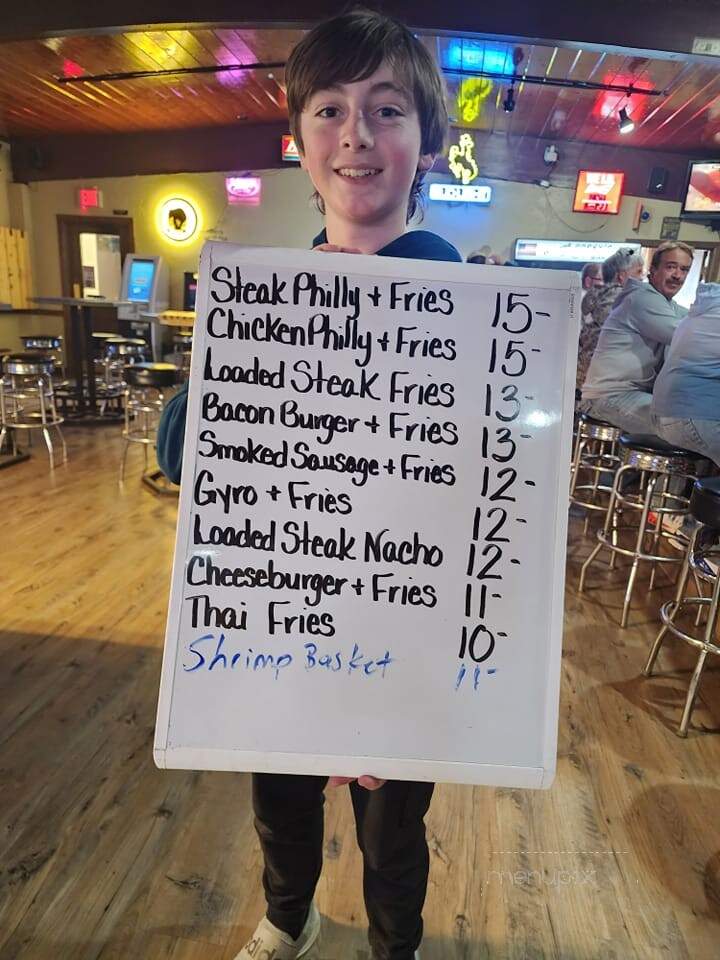 Steak Philly + Fries 15-
Chicken Philly + Fries 15-
Loaded Steak Fries 13-
Bacon Burger + Fries 13-
Smoked Sausage + Fries 12-
Gyro + Fries 12-
Loaded Steak Nacho 12-
Cheeseburger + Fries 11-
Thai Fries 10-
Shrimp Basket 11-
menupix
adidas